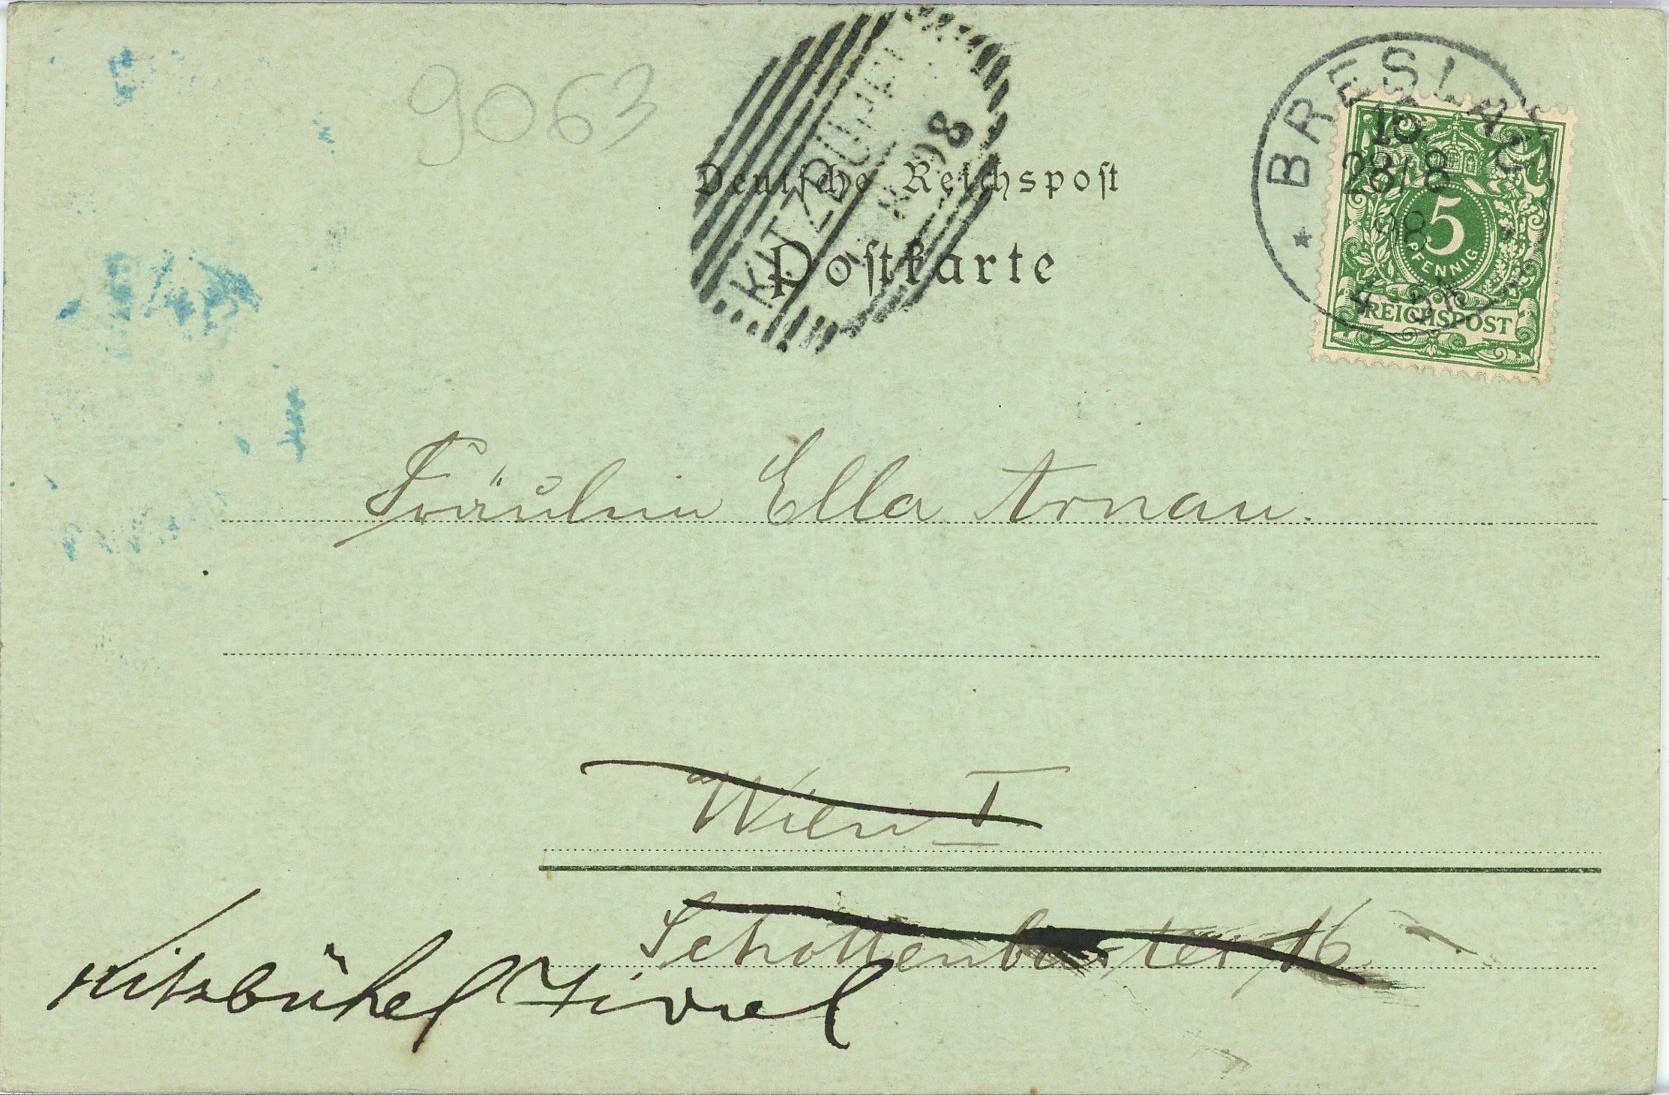 9063
KITZBÜHEL
98
BRESLAU
10
28/8
98
5
PFENNIG
REICHSPOST
Deutsche Reichspost
Postkarte
Fräulein Ella Arnau.
Wien I
Schottenbastei 16
Kitzbühel Tirol